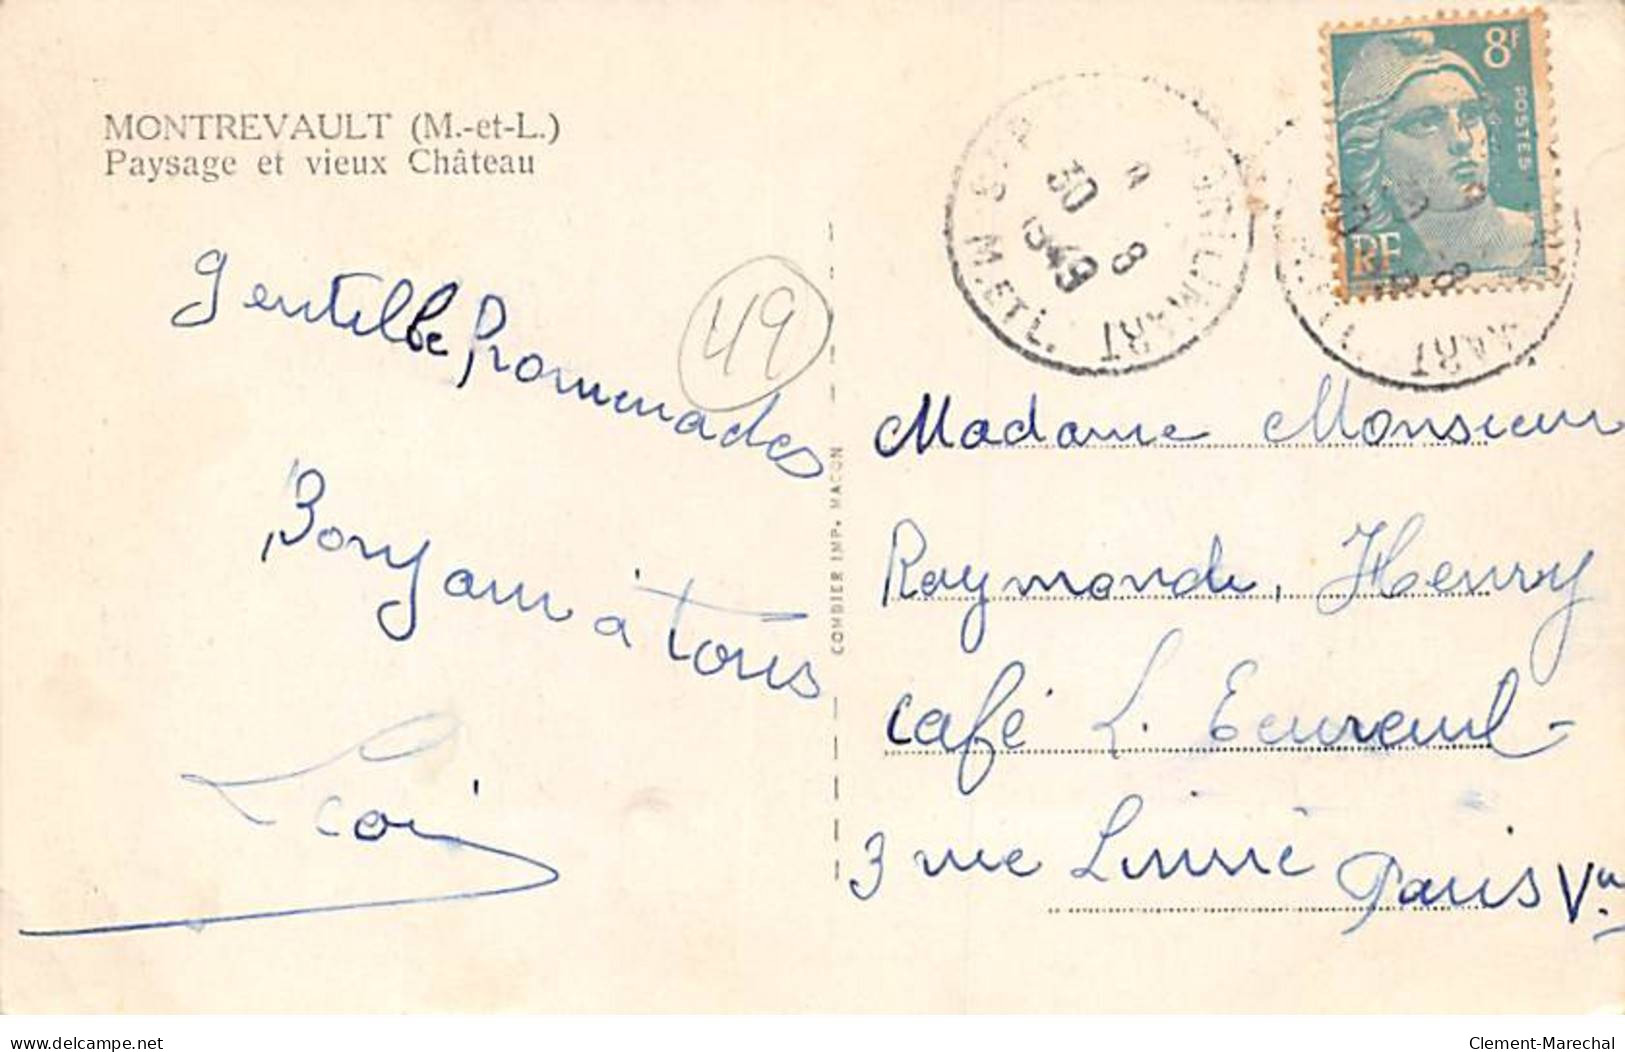 MONTREVAULT (M.-et-L.)
Paysage et vieux Château
Gentille Promenades
49
Bonjour à tous
8F
POSTES
RF
30 8
1949
M. ET L.
COMBIER IMP. MACON
Madame Monsieur
Raymonde, Henry
café L. Ecureuil -
3 rue Linné Paris V
delcampe.net
Clement-Marechal